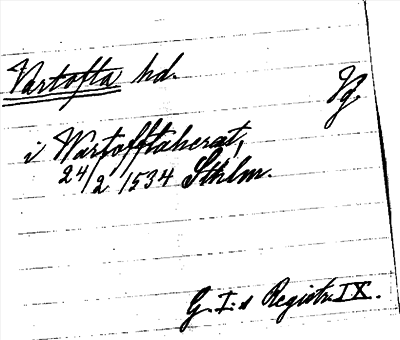 Vartofta hd.
Vg
i Wartofftaherat,
24/2 1534 Sthlm.
G. I:s Registr. IX.